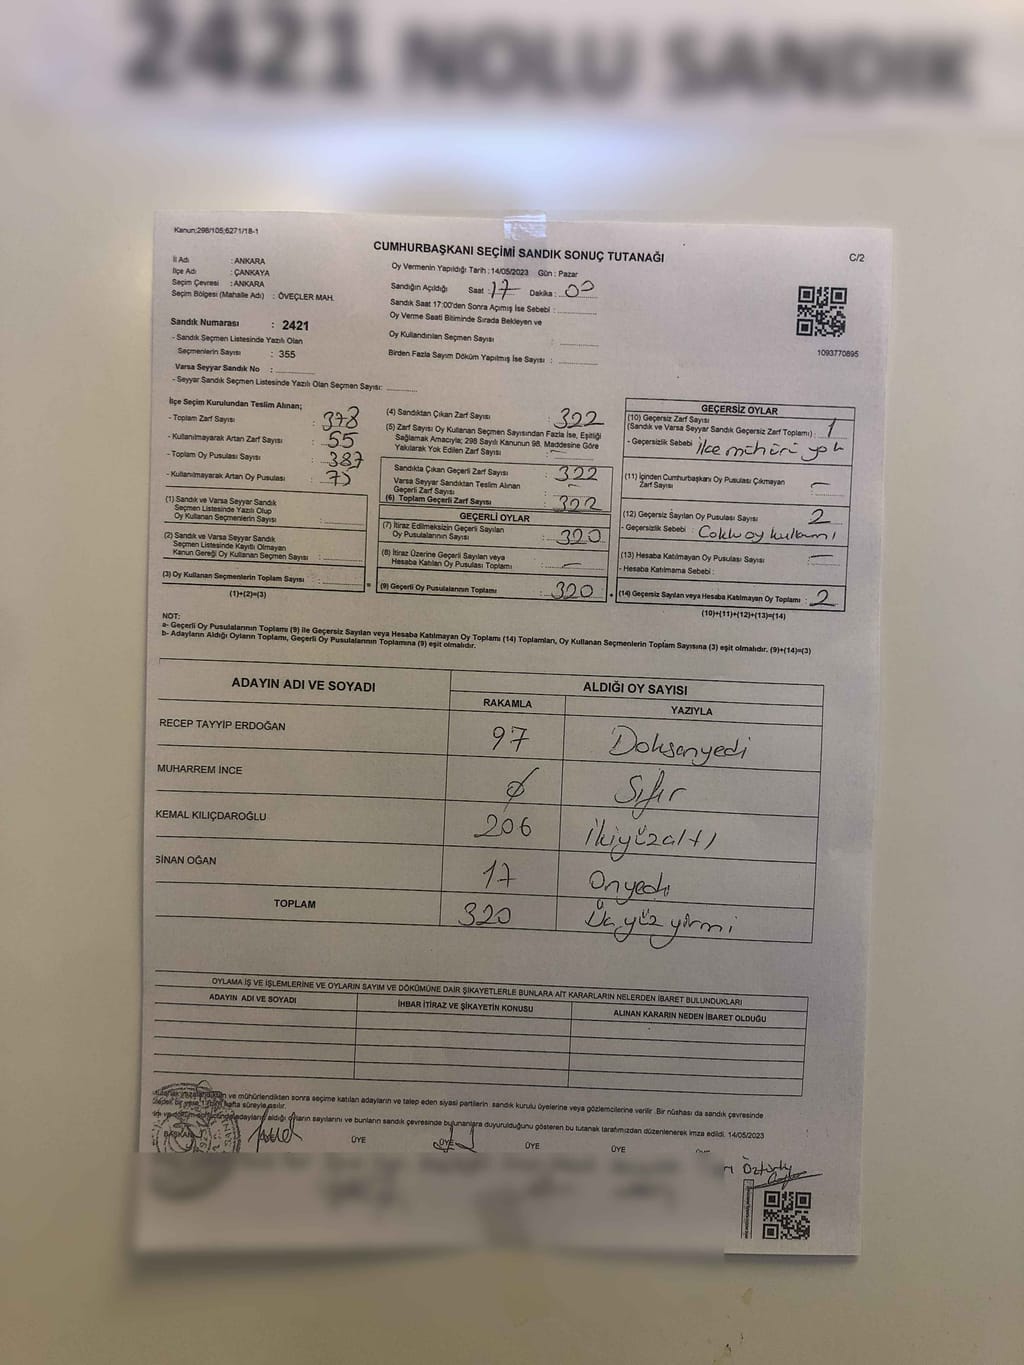 2421 NOLU SANDIK
Kanun;298/105;6271/18-1
CUMHURBAŞKANI SEÇİMİ SANDIK SONUÇ TUTANAĞI
C/2
İl Adı : ANKARA
İlçe Adı : ÇANKAYA
Seçim Çevresi : ANKARA
Seçim Bölgesi (Mahalle Adı) : ÖVEÇLER MAH.
Oy Vermenin Yapıldığı Tarih : 14/05/2023 Gün : Pazar
Sandığın Açıldığı Saat : 17 Dakika : 00
Sandık Saat 17:00'den Sonra Açımış İse Sebebi :
Oy Verme Saati Bitiminde Sırada Bekleyen ve
Oy Kullandırılan Seçmen Sayısı :
Birden Fazla Sayım Döküm Yapılmış İse Sayısı :
1093770895
Sandık Numarası : 2421
- Sandık Seçmen Listesinde Yazılı Olan
Seçmenlerin Sayısı : 355
Varsa Seyyar Sandık No :
- Seyyar Sandık Seçmen Listesinde Yazılı Olan Seçmen Sayısı:
İlçe Seçim Kurulundan Teslim Alınan;
- Toplam Zarf Sayısı : 378
- Kullanılmayarak Artan Zarf Sayısı : 55
- Toplam Oy Pusulası Sayısı : 387
- Kullanılmayarak Artan Oy Pusulası :
(1) Sandık ve Varsa Seyyar Sandık
Seçmen Listesinde Yazılı Olup
Oy Kullanan Seçmenlerin Sayısı :
(2) Sandık ve Varsa Seyyar Sandık
Seçmen Listesinde Kayıtlı Olmayan
Kanun Gereği Oy Kullanan Seçmen Sayısı :
(3) Oy Kullanan Seçmenlerin Toplam Sayısı :
(1)+(2)=(3)
(4) Sandıktan Çıkan Zarf Sayısı : 322
(5) Zarf Sayısı Oy Kullanan Seçmen Sayısından Fazla İse, Eşitliği
Sağlamak Amacıyla; 298 Sayılı Kanunun 98. Maddesine Göre
Yakılarak Yok Edilen Zarf Sayısı : —
Sandıkta Çıkan Geçerli Zarf Sayısı : 322
Varsa Seyyar Sandıktan Teslim Alınan
Geçerli Zarf Sayısı : —
(6) Toplam Geçerli Zarf Sayısı : 322
GEÇERLİ OYLAR
(7) İtiraz Edilmeksizin Geçerli Sayılan
Oy Pusulalarının Sayısı : 320
(8) İtiraz Üzerine Geçerli Sayılan veya
Hesaba Katılan Oy Pusulası Toplamı : —
(9) Geçerli Oy Pusulalarının Toplamı : 320
GEÇERSİZ OYLAR
(10) Geçersiz Zarf Sayısı
(Sandık ve Varsa Seyyar Sandık Geçersiz Zarf Toplamı) : 1
- Geçersizlik Sebebi : ilçe mühürü yok
(11) İçinden Cumhurbaşkanı Oy Pusulası Çıkmayan
Zarf Sayısı : —
(12) Geçersiz Sayılan Oy Pusulası Sayısı : 2
- Geçersizlik Sebebi : Çoklu oy kullanımı
(13) Hesaba Katılmayan Oy Pusulası Sayısı : —
- Hesaba Katılmama Sebebi :
(14) Geçersiz Sayılan veya Hesaba Katılmayan Oy Toplamı : 2
(10)+(11)+(12)+(13)=(14)
NOT:
a- Geçerli Oy Pusulalarının Toplamı (9) ile Geçersiz Sayılan veya Hesaba Katılmayan Oy Toplamı (14) Toplamları, Oy Kullanan Seçmenlerin Toplam Sayısına (3) eşit olmalıdır. (9)+(14)=(3)
b- Adayların Aldığı Oyların Toplamı, Geçerli Oy Pusulalarının Toplamına (9) eşit olmalıdır.
ADAYIN ADI VE SOYADI ALDIĞI OY SAYISI
RAKAMLA YAZIYLA
RECEP TAYYİP ERDOĞAN 97 Doksanyedi
MUHARREM İNCE 0 Sıfır
KEMAL KILIÇDAROĞLU 206 ikiyüzaltı
SİNAN OĞAN 17 Onyedi
TOPLAM 320 Üçyüzyirmi
OYLAMA İŞ VE İŞLEMLERİNE VE OYLARIN SAYIM VE DÖKÜMÜNE DAİR ŞİKAYETLERLE BUNLARA AİT KARARLARIN NELERDEN İBARET BULUNDUKLARI
ADAYIN ADI VE SOYADI İHBAR İTİRAZ VE ŞİKAYETİN KONUSU ALINAN KARARIN NEDEN İBARET OLDUĞU
ve mühürlendikten sonra seçime katılan adayların ve talep eden siyasi partilerin sandık kurulu üyelerine veya gözlemcilerine verilir. Bir nüshası da sandık çevresinde
hafta süreyle asılır.
aldığı oyların sayılarını ve bunların sandık çevresinde bulunanlara duyurulduğunu gösteren bu tutanak tarafımızdan düzenlenerek imza edildi. 14/05/2023
BAŞKAN ÜYE ÜYE ÜYE ÜYE
Öztürk